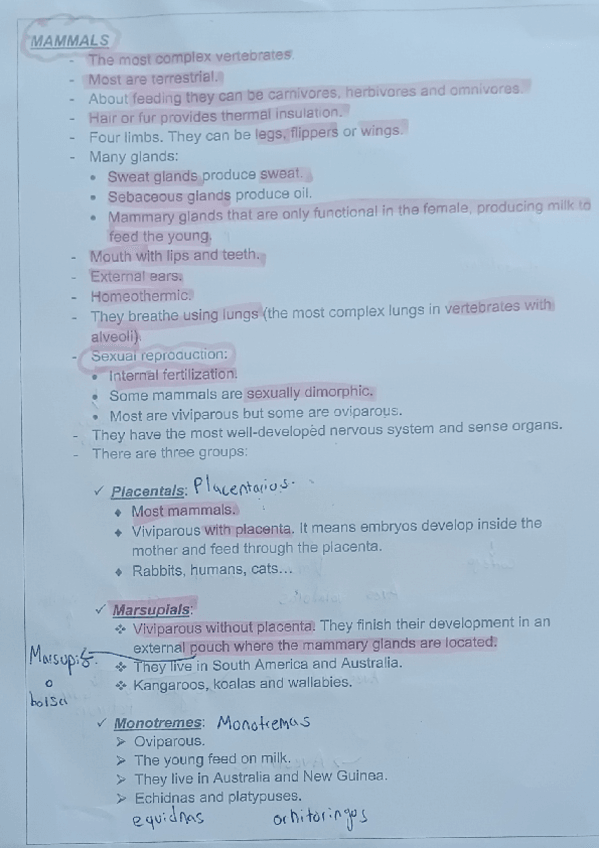 MAMMALS
- The most complex vertebrates.
- Most are terrestrial.
- About feeding they can be carnivores, herbivores and omnivores.
- Hair or fur provides thermal insulation.
- Four limbs. They can be legs, flippers or wings.
- Many glands:
• Sweat glands produce sweat.
• Sebaceous glands produce oil.
• Mammary glands that are only functional in the female, producing milk to
feed the young.
- Mouth with lips and teeth.
- External ears.
- Homeothermic.
- They breathe using lungs (the most complex lungs in vertebrates with
alveoli).
- Sexual reproduction:
• Internal fertilization.
• Some mammals are sexually dimorphic.
• Most are viviparous but some are oviparous.
- They have the most well-developed nervous system and sense organs.
- There are three groups:
✓ Placentals: Placentarios.
♦ Most mammals.
♦ Viviparous with placenta. It means embryos develop inside the
mother and feed through the placenta.
♦ Rabbits, humans, cats...
✓ Marsupials:
❖ Viviparous without placenta. They finish their development in an
external pouch where the mammary glands are located.
❖ They live in South America and Australia.
❖ Kangaroos, koalas and wallabies.
o
bolsa
✓ Monotremes: Monotremas
➢ Oviparous.
➢ The young feed on milk.
➢ They live in Australia and New Guinea.
➢ Echidnas and platypuses.
equidnas ornitoringos